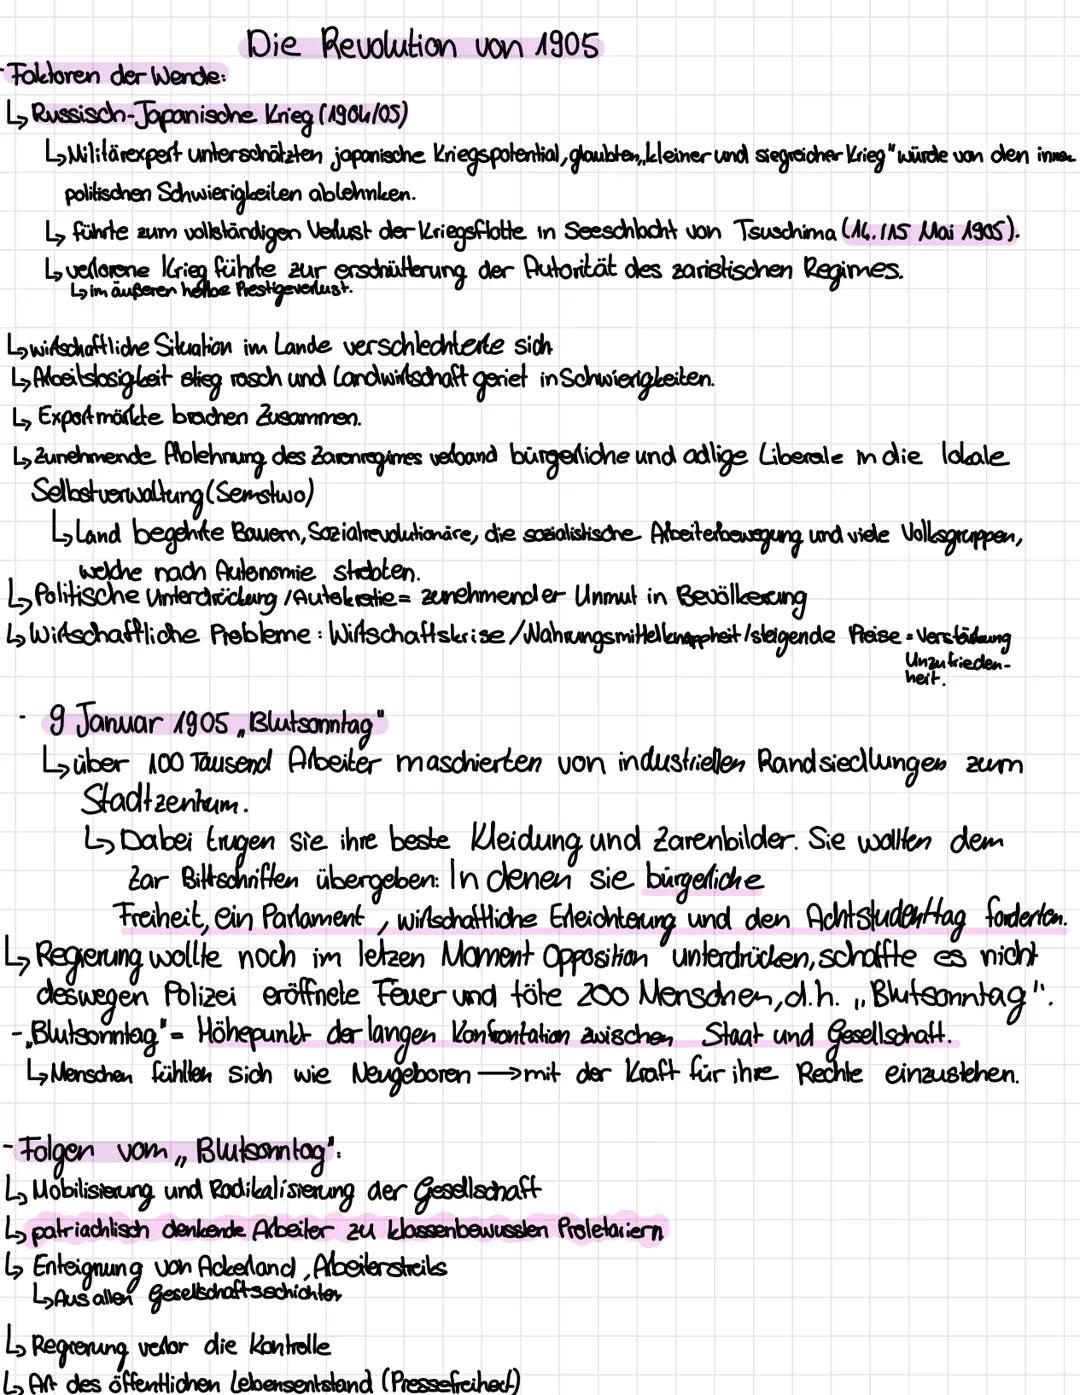 Die Revolution von 1905
- Faktoren der Wende:
↳ Russisch-Japanische Krieg (1904/05)
↳ Militärexpert unterschätzten japanische Kriegspotential, glaubten „kleiner und siegreicher Krieg" würde von den innen
politischen Schwierigkeiten ablehnken.
↳ führte zum vollständigen Verlust der Kriegsflotte in Seeschlacht von Tsuschima (14./15 Mai 1905).
↳ verlorene Krieg führte zur erschütterung der Autorität des zaristischen Regimes.
↳ im äußeren hohe Prestigeverlust.
↳ wirtschaftliche Situation im Lande verschlechterte sich
↳ Arbeitslosigkeit stieg rasch und Landwirtschaft geriet in Schwierigkeiten.
↳ Exportmärkte brachen Zusammen.
↳ Zunehmende Ablehnung des Zarenregimes verband bürgerliche und adlige Liberale in die lokale
Selbstverwaltung (Semstwo)
↳ Land begehrte Bauern, Sozialrevolutionäre, die sozialistische Arbeiterbewegung und viele Volksgruppen,
welche nach Autonomie strebten.
↳ Politische Unterdrückung / Autokratie = zunehmender Unmut in Bevölkerung
↳ Wirtschaftliche Probleme: Wirtschaftskrise / Nahrungsmittelknappheit / steigende Preise = Verstärkung
Unzufrieden-
heit.
- 9 Januar 1905 „Blutsonntag"
↳ über 100 Tausend Arbeiter maschierten von industriellen Randsiedlungen zum
Stadtzentum.
↳ Dabei trugen sie ihre beste Kleidung und Zarenbilder. Sie wollten dem
Zar Bittschriften übergeben: In denen sie bürgerliche
Freiheit, ein Parlament, wirtschaftliche Erleichterung und den Achtstudenttag forderten.
↳ Regierung wollte noch im letzen Moment Opposition unterdrücken, schaffte es nicht
deswegen Polizei eröffnete Feuer und töte 200 Menschen, d.h. „Blutsonntag".
- „Blutsonntag" = Höhepunkt der langen Konfrontation zwischen Staat und Gesellschaft.
↳ Menschen fühlten sich wie Neugeboren → mit der Kraft für ihre Rechte einzustehen.
- Folgen vom „Blutsonntag":
↳ Mobilisierung und Radikalisierung der Gesellschaft
↳ patriachlisch denkende Arbeiter zu klassenbewussten Proletariern
↳ Enteignung von Ackerland, Arbeiterstreiks
↳ Aus allen Gesellschaftsschichten
↳ Regierung verlor die Kontrolle
↳ Art des öffentlichen Lebensentstand (Pressefreiheit)